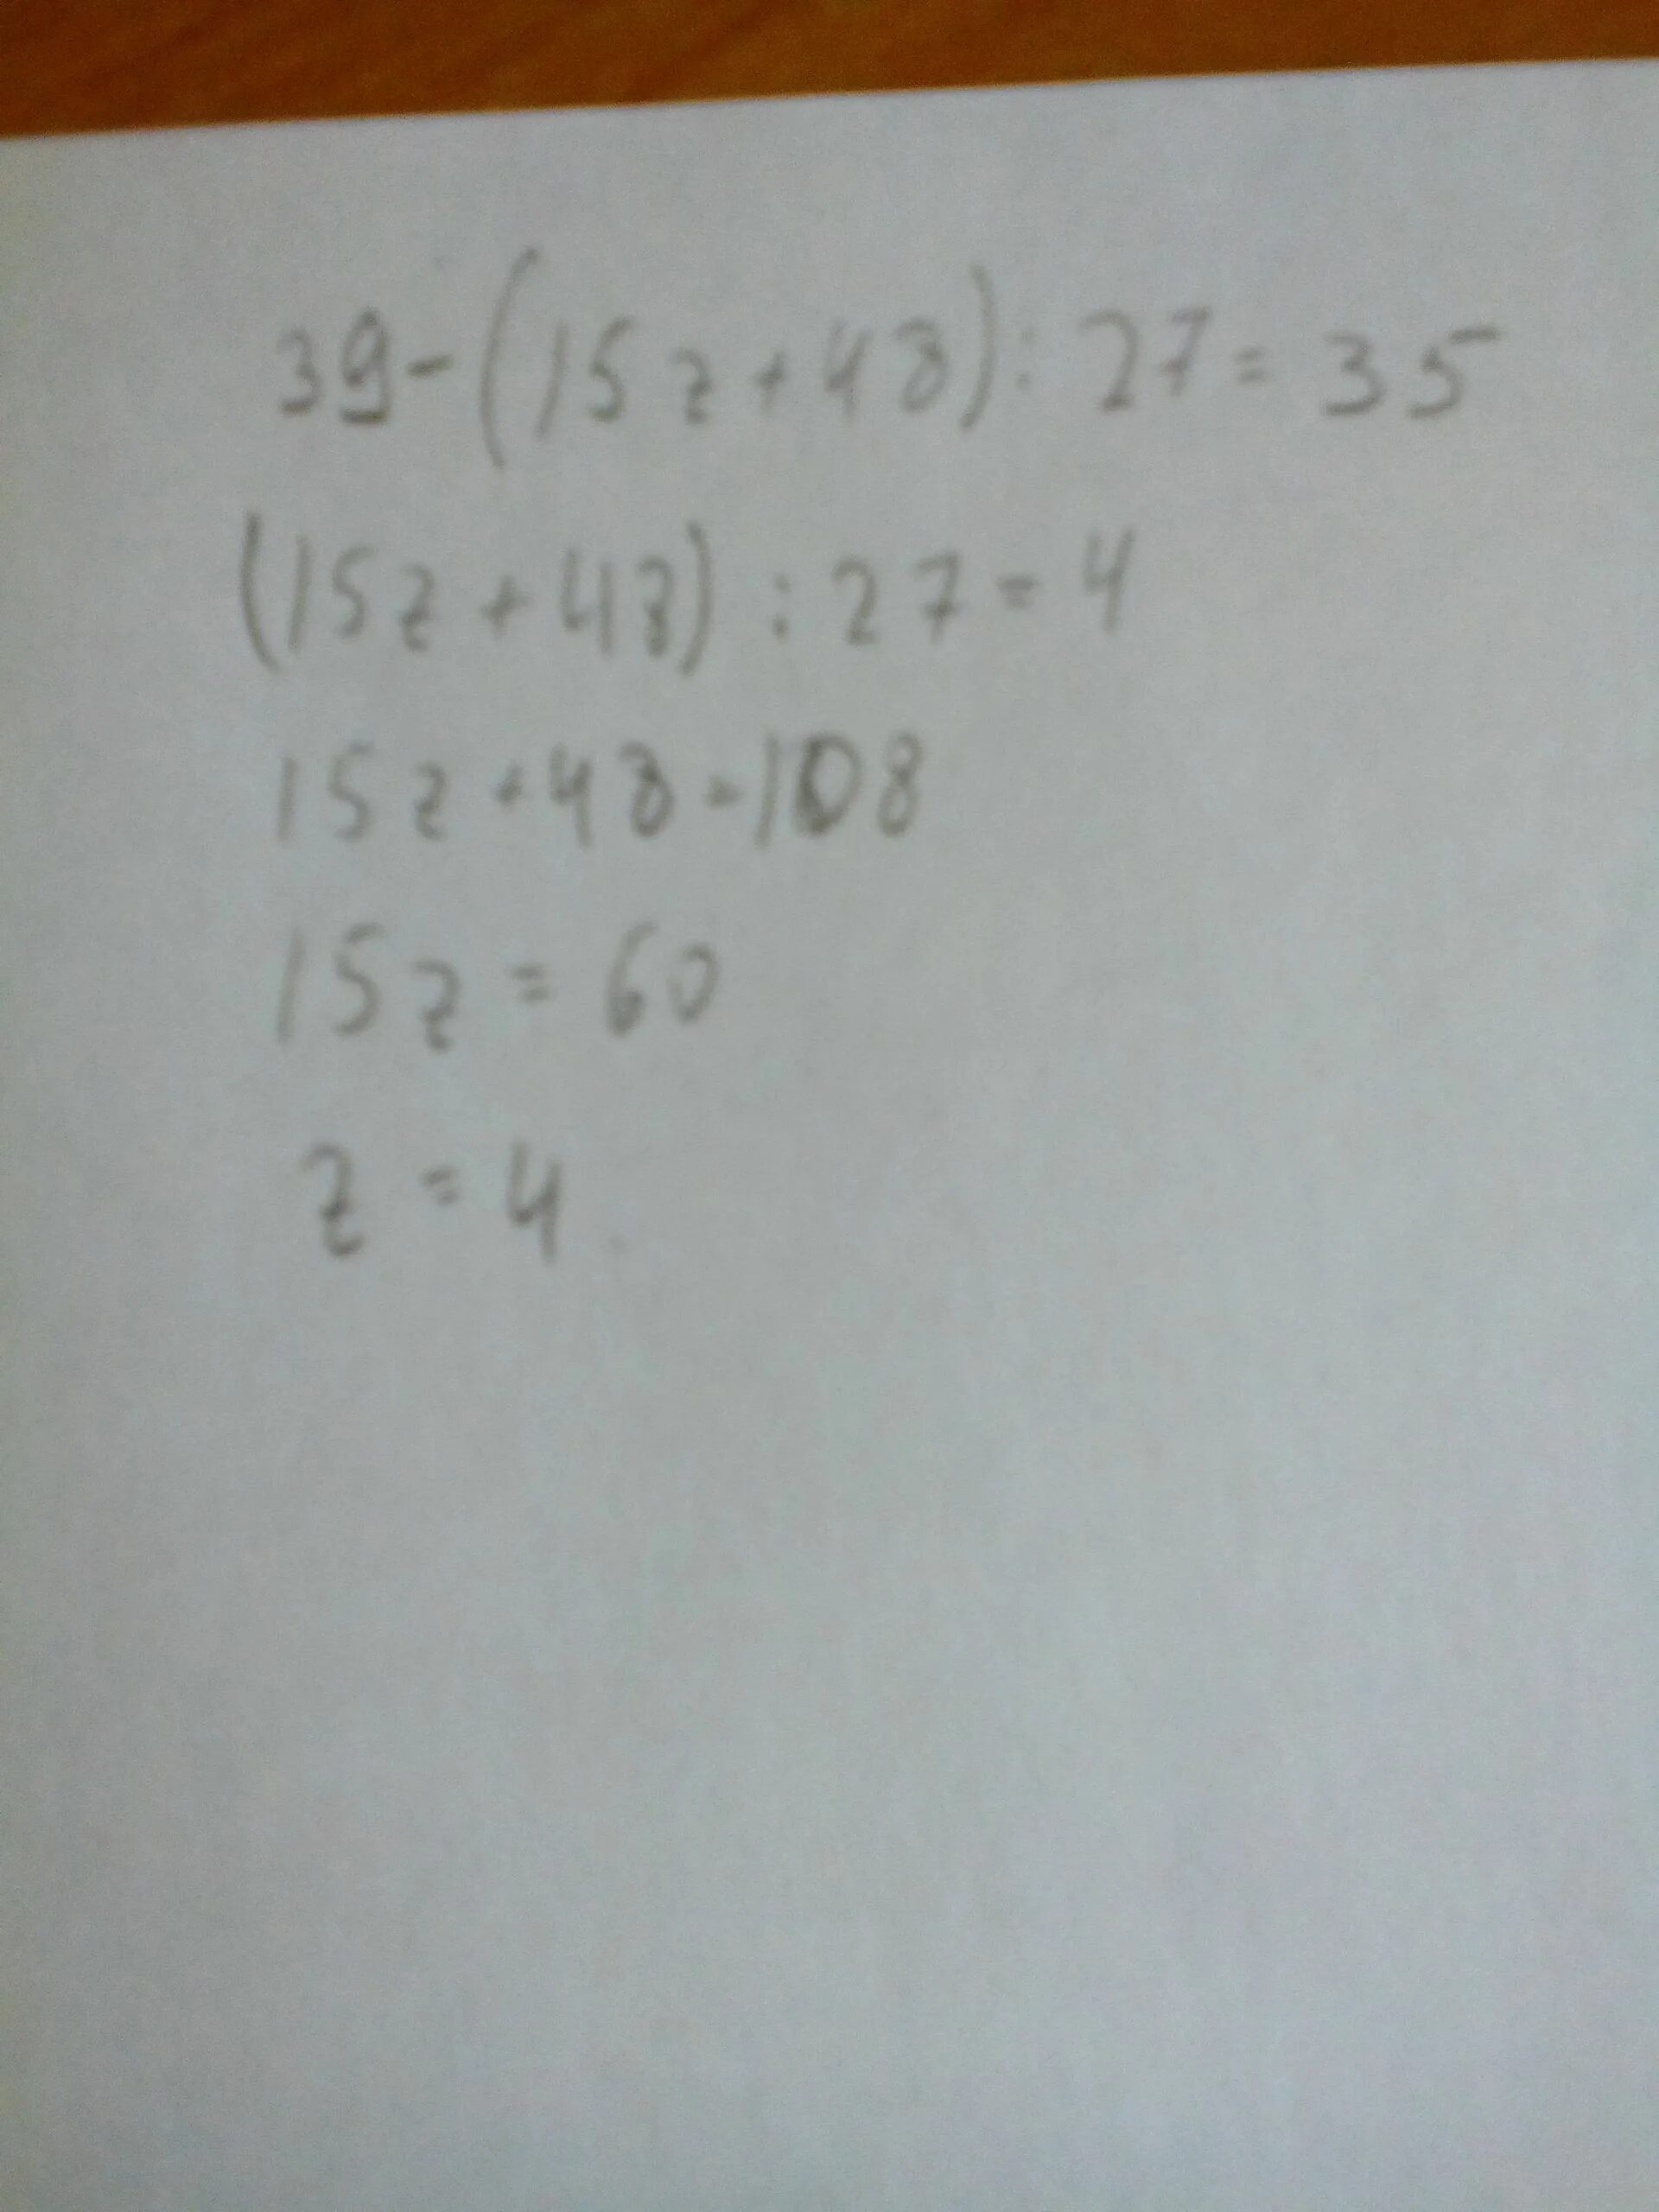 39-(15z+48):27=35
(15z+48):27=4
15z+48=108
15z=60
z=4